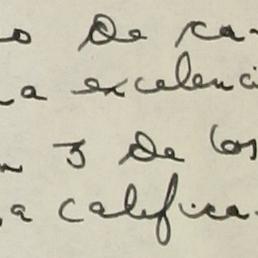 o de ca-
a excelenci
n 3 de los
a califica-